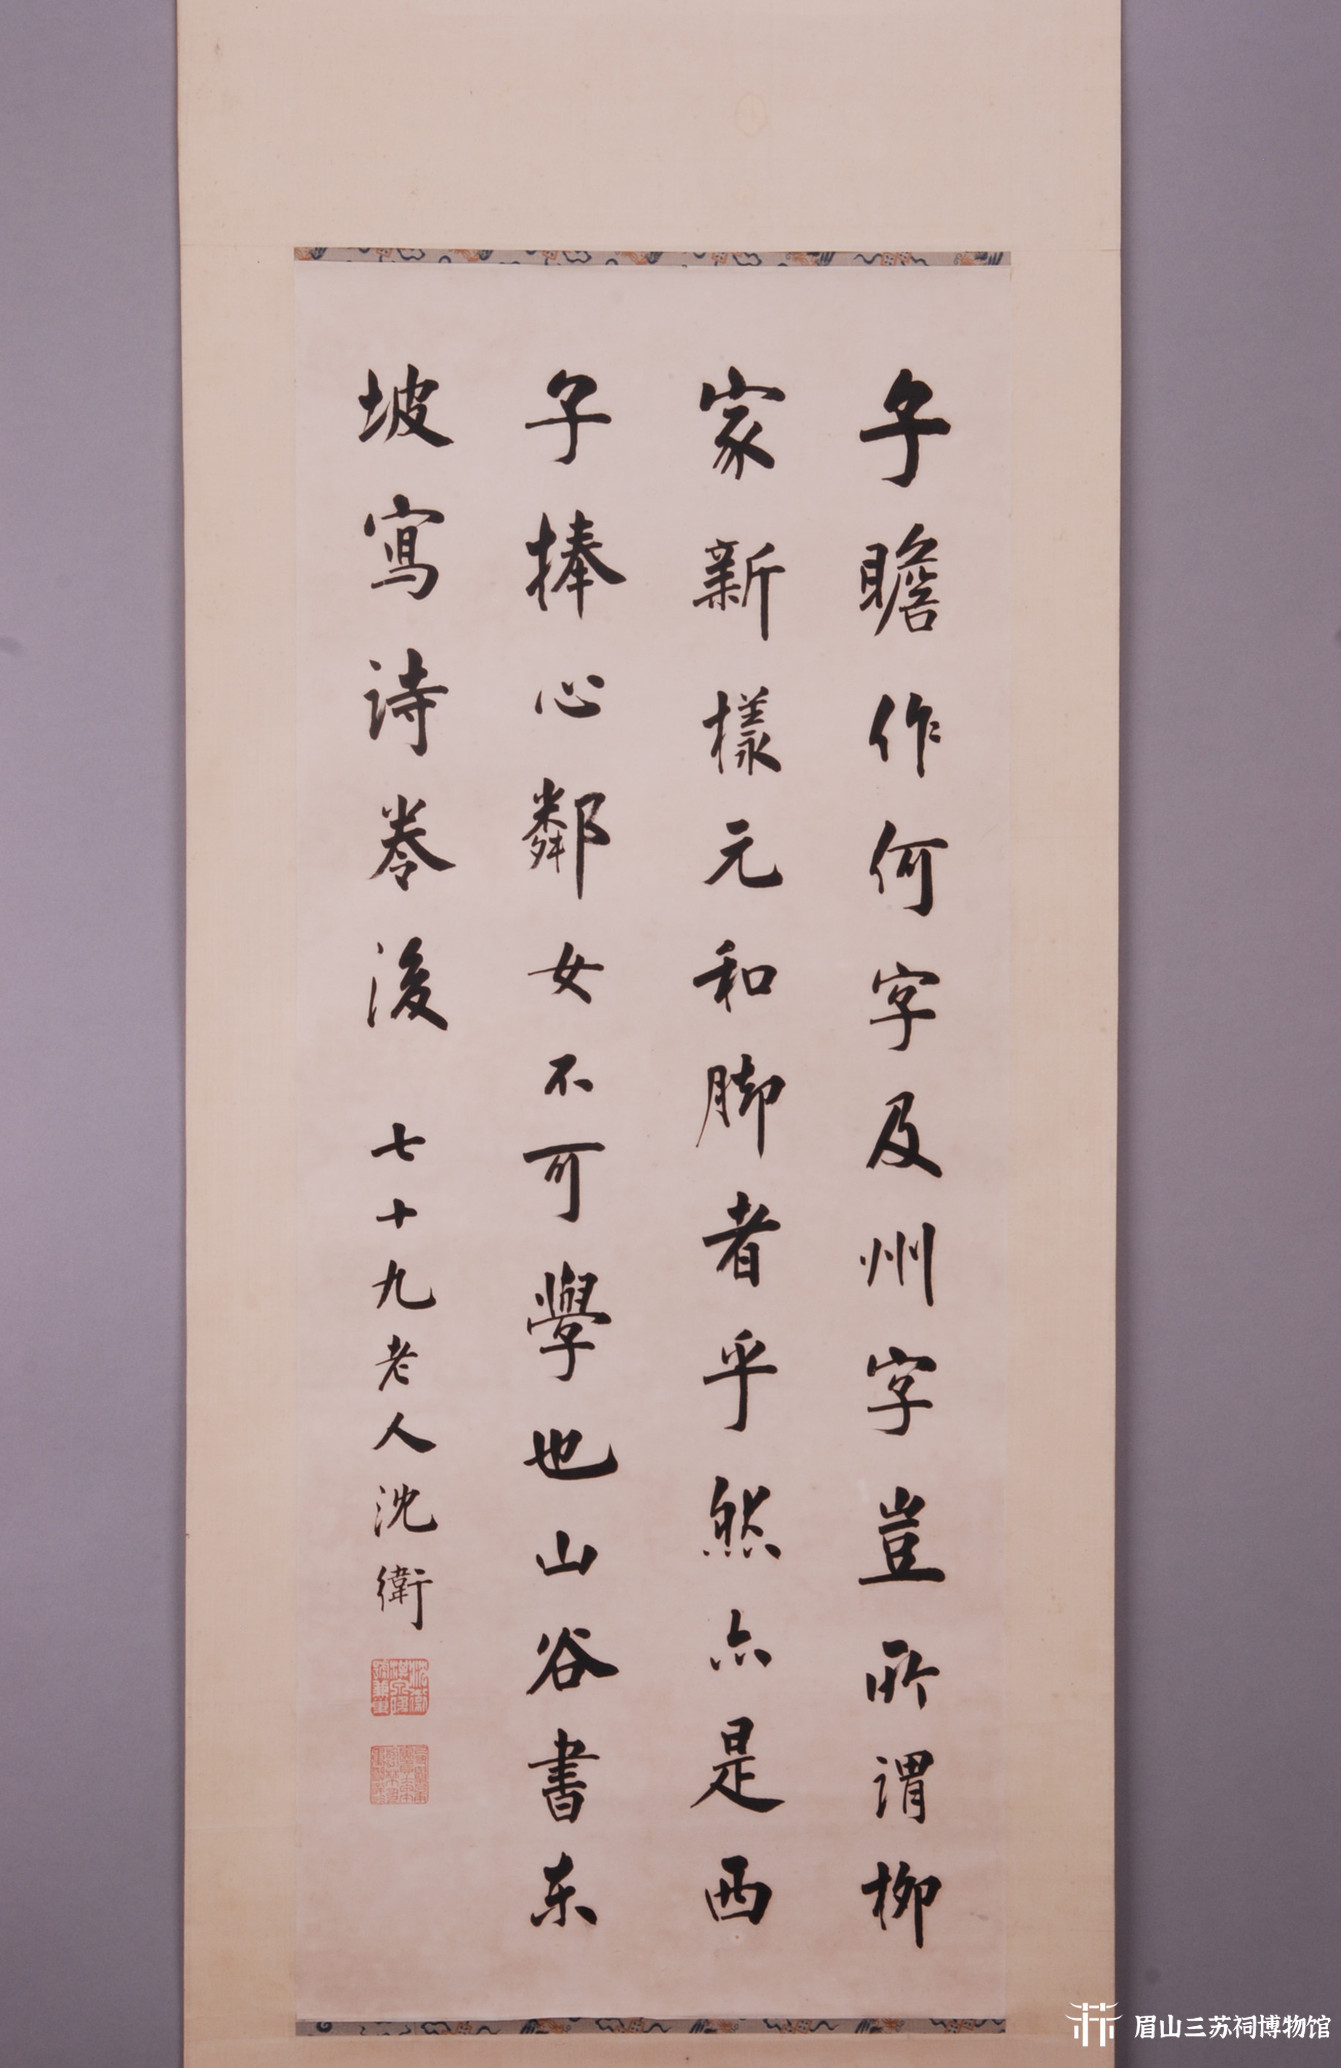 子瞻作何字及州字豈所謂柳
家新樣元和脚者乎然亦是西
子捧心鄰女不可學也山谷書东
坡寫詩卷後
七十九老人沈衛
眉山三苏祠博物馆